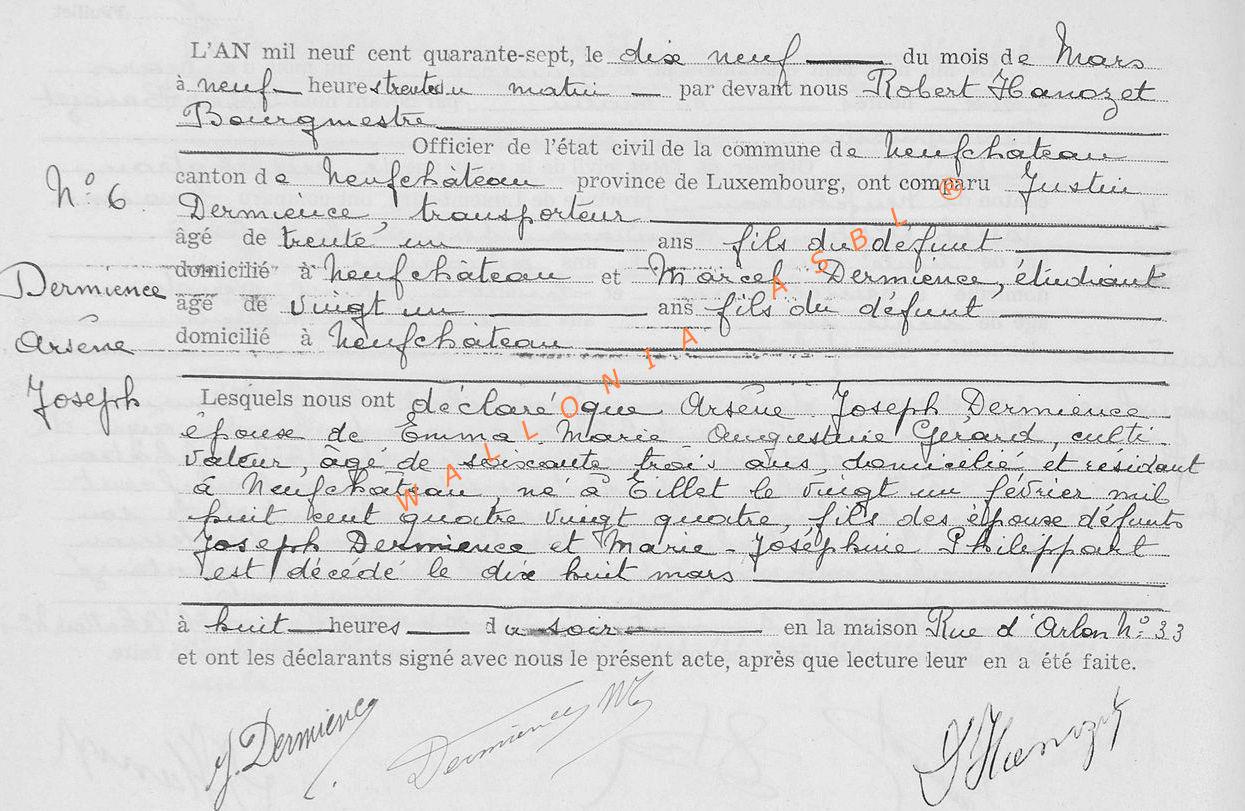 L'AN mil neuf cent quarante-sept, le dix neuf du mois de Mars
à neuf heures trente du matin par devant nous Robert Hanozet
Bourgmestre
Officier de l'état civil de la commune de Neufchâteau
N° 6.
canton de Neufchâteau province de Luxembourg, ont comparu Justin
Dermience, transporteur
âgé de trente un ans fils du défunt
domicilié à Neufchâteau et Marcel Dermience, étudiant
Dermience
âgé de vingt un ans fils du défunt
Arsène
domicilié à Neufchâteau
Joseph
Lesquels nous ont déclaré que Arsène Joseph Dermience
épouse de Emma Marie Augustine Gérard, culti
vateur, âgé de soixante trois ans, domicilié et résidant
à Neufchâteau, né à Tillet le vingt un février mil
huit cent quatre vingt quatre, fils des épouse défunts
Joseph Dermience et Marie-Joséphine Philippart
est décédé le dix huit mars
à huit heures du soir en la maison Rue d'Arlon N° 33
et ont les déclarants signé avec nous le présent acte, après que lecture leur en a été faite.
J. Dermience Dermience M
WALLONIA ASBL ®